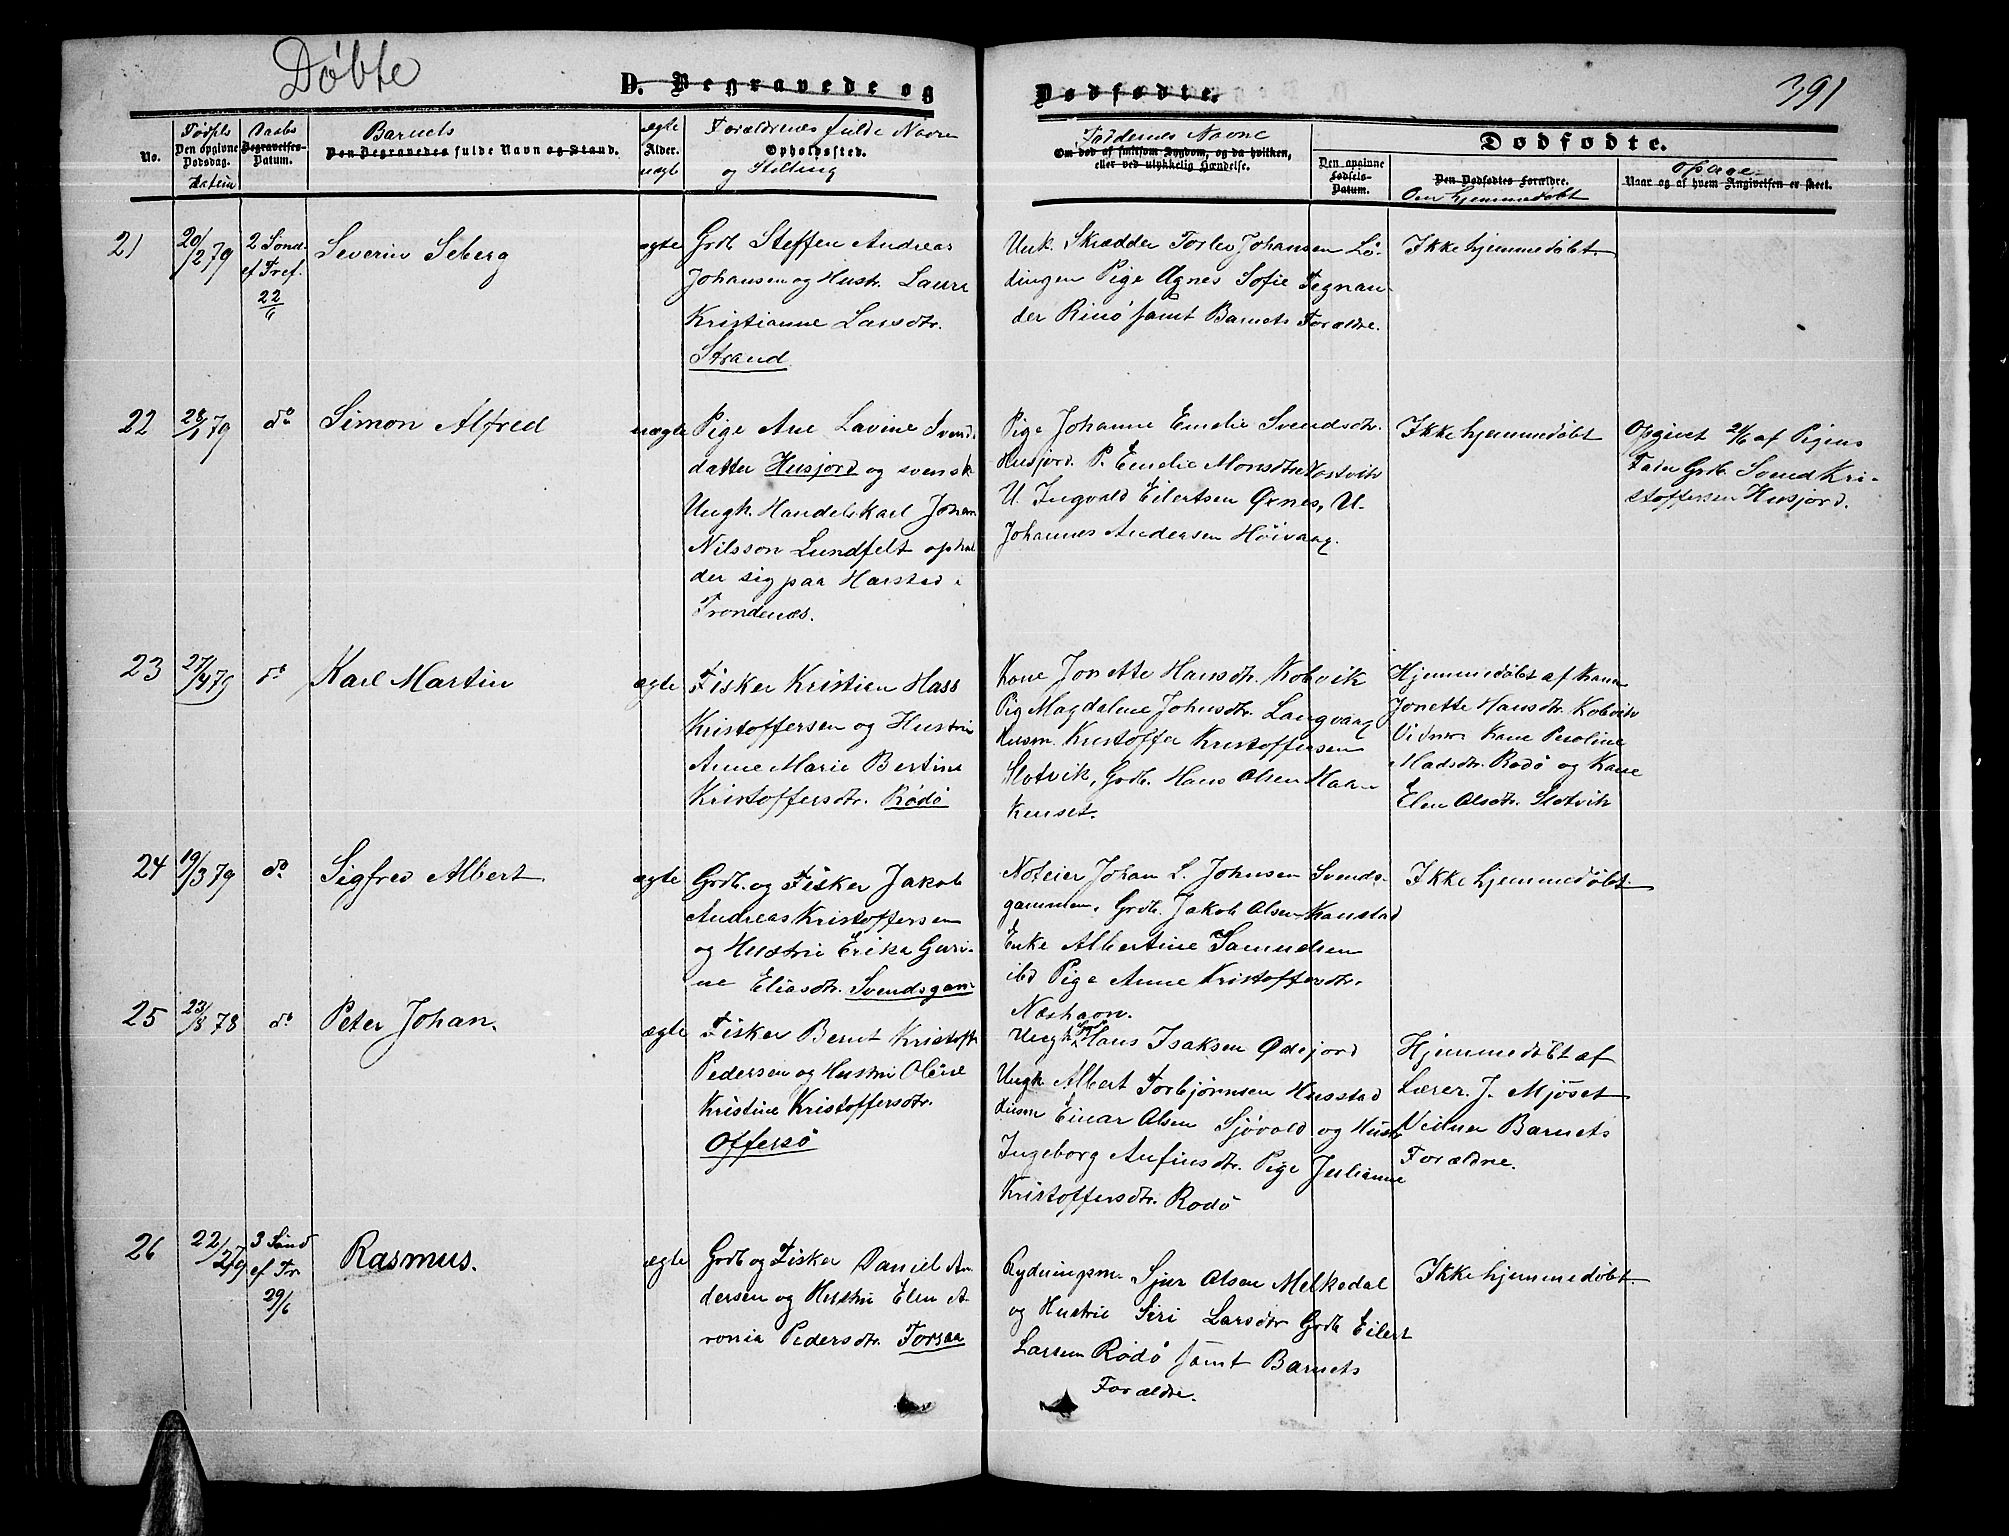 Døbte
D. Begravede og
Dødfødte.
391
No.
Fødsels
Den opgivne
Dødsdag.
Datum
Daabs
Begravelses-
Datum.
Barnets
Den Begravedes fulde Navn og Stand.
ægte
Alder.
uægte
Forældrenes fulde Navne
Opholdssted.
og Stilling
Faddernes Navne
Om død af smitsom Sygdom, og da hvilken,
eller ved ulykkelig Hændelse.
Dødfødte.
Den opgivne
Fødsels-
Datum.
Den Dødfødtes Forældre.
Om hjemmedøbt
Naar og af hvem Angivelsen er skeet.
21
20/2 79
2 Sønd
ef Tref.
22/6
Severin Seberg
ægte
Grdb. Steffen Andreas
Johansen og Hustr. Laura
Kristianne Larsdtr.
Strand
Unk. Skrædder Torlev Johansen Lø-
dingen Pige Agnes Sofie Tegnan-
der Rinø samt Barnets Forældre.
Ikke hjemmedøbt.
22
28/1 79
do
Simon Alfred
uægte
Pige Ane Lavine Svends
datter Husjord og svensk
Ungk. Handelskarl Johan
Nilsson Lundfelt ophol
der sig paa Harstad i
Trondenæs.
Pige Johanne Emelie Svendsdtr.
Husjord. P. Emelie Monsdtr Kostvik
U. Ingvald Eilertsen Øxnes, U.
Johannes Andersen Höivaag.
Ikke hjemmedøbt
Opgivet 24/6 af Pigens
Fader Grdb. Svend Kri-
stoffersen Husjord.
23
27/4 79
do
Karl Martin
ægte
Fisker Kristian Hass
Kristoffersen og Hustru
Anne Marie Bertine
Kristoffersdtr. Rødø
Kone Jonette Hansdtr. Kobvik
Pig Magdalene Johnsdtr. Langvaag
Husm. Kristoffer Kristoffersen
Slotvik, Grdb. Hans Olsen Haa-
kenset.
Hjemmedøbt af Kone
Jonette Hansdtr. Kobvik
Vidner Kone Peroline
Madsdtr. Rødø og Kone
Elen Olsdtr. Slotvik
24
19/3 79
do
Sigfred Albert
ægte
Grdb. og Fisker Jakob
Andreas Kristoffersen
og Hustru Erika Guri-
ne Eliasdtr. Svendsgam-
Noteier Johan L. Johnsen Svends-
gammen, Grdb. Jakob Olsen Kanstad
Enke Albertine Samuelsen
ibd Pige Anne Kristoffersdtr.
Næshavn.
Ikke hjemmedøbt.
25
23/8 78
do
Peter Johan.
ægte
Fisker Bernt Kristoff
Pedersen og Hustru Oline
Kristine Kristoffersdtr.
Offersø
Ungk. Hans Isaksen Ødejord
Ungk. Albert Torbjørnsen Husstad
Husm Einar Olsen Sjövold og Hustr
Ingeborg Anfinsdtr. Pige Julianne
Kristoffersdtr. Rødø
Hjemmedøbt af
Lærer J. Mjøset
Veidner Barnets
Forældre.
26
22/2 79
3 Sønd
ef Tr
29/6
Rasmus.
ægte
Grdb og Fisker Daniel An
dersen og Hustru Elen A-
ronia Pedersdtr. Forsaa
Rydningsm. Sjur Olsen Melkedal
og Hustru Siri Larsdtr Grdb Eilert
Larsen Rødø samt Barnets
Forældre.
Ikke hjemmedøbt